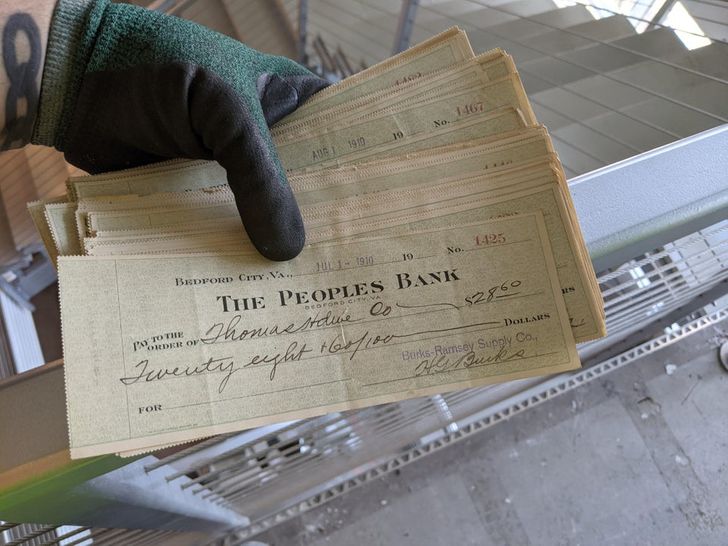 8
AUG 1 1910 19 No. 1467
BEDFORD CITY, VA., JUL 1 - 1910 19 No. 1425
THE PEOPLES BANK
BEDFORD CITY, VA.
PAY TO THE ORDER OF Thomas Howe Co $28 60
Twenty eight + 60/100 DOLLARS
Burks-Ramsey Supply Co.,
FOR
RS